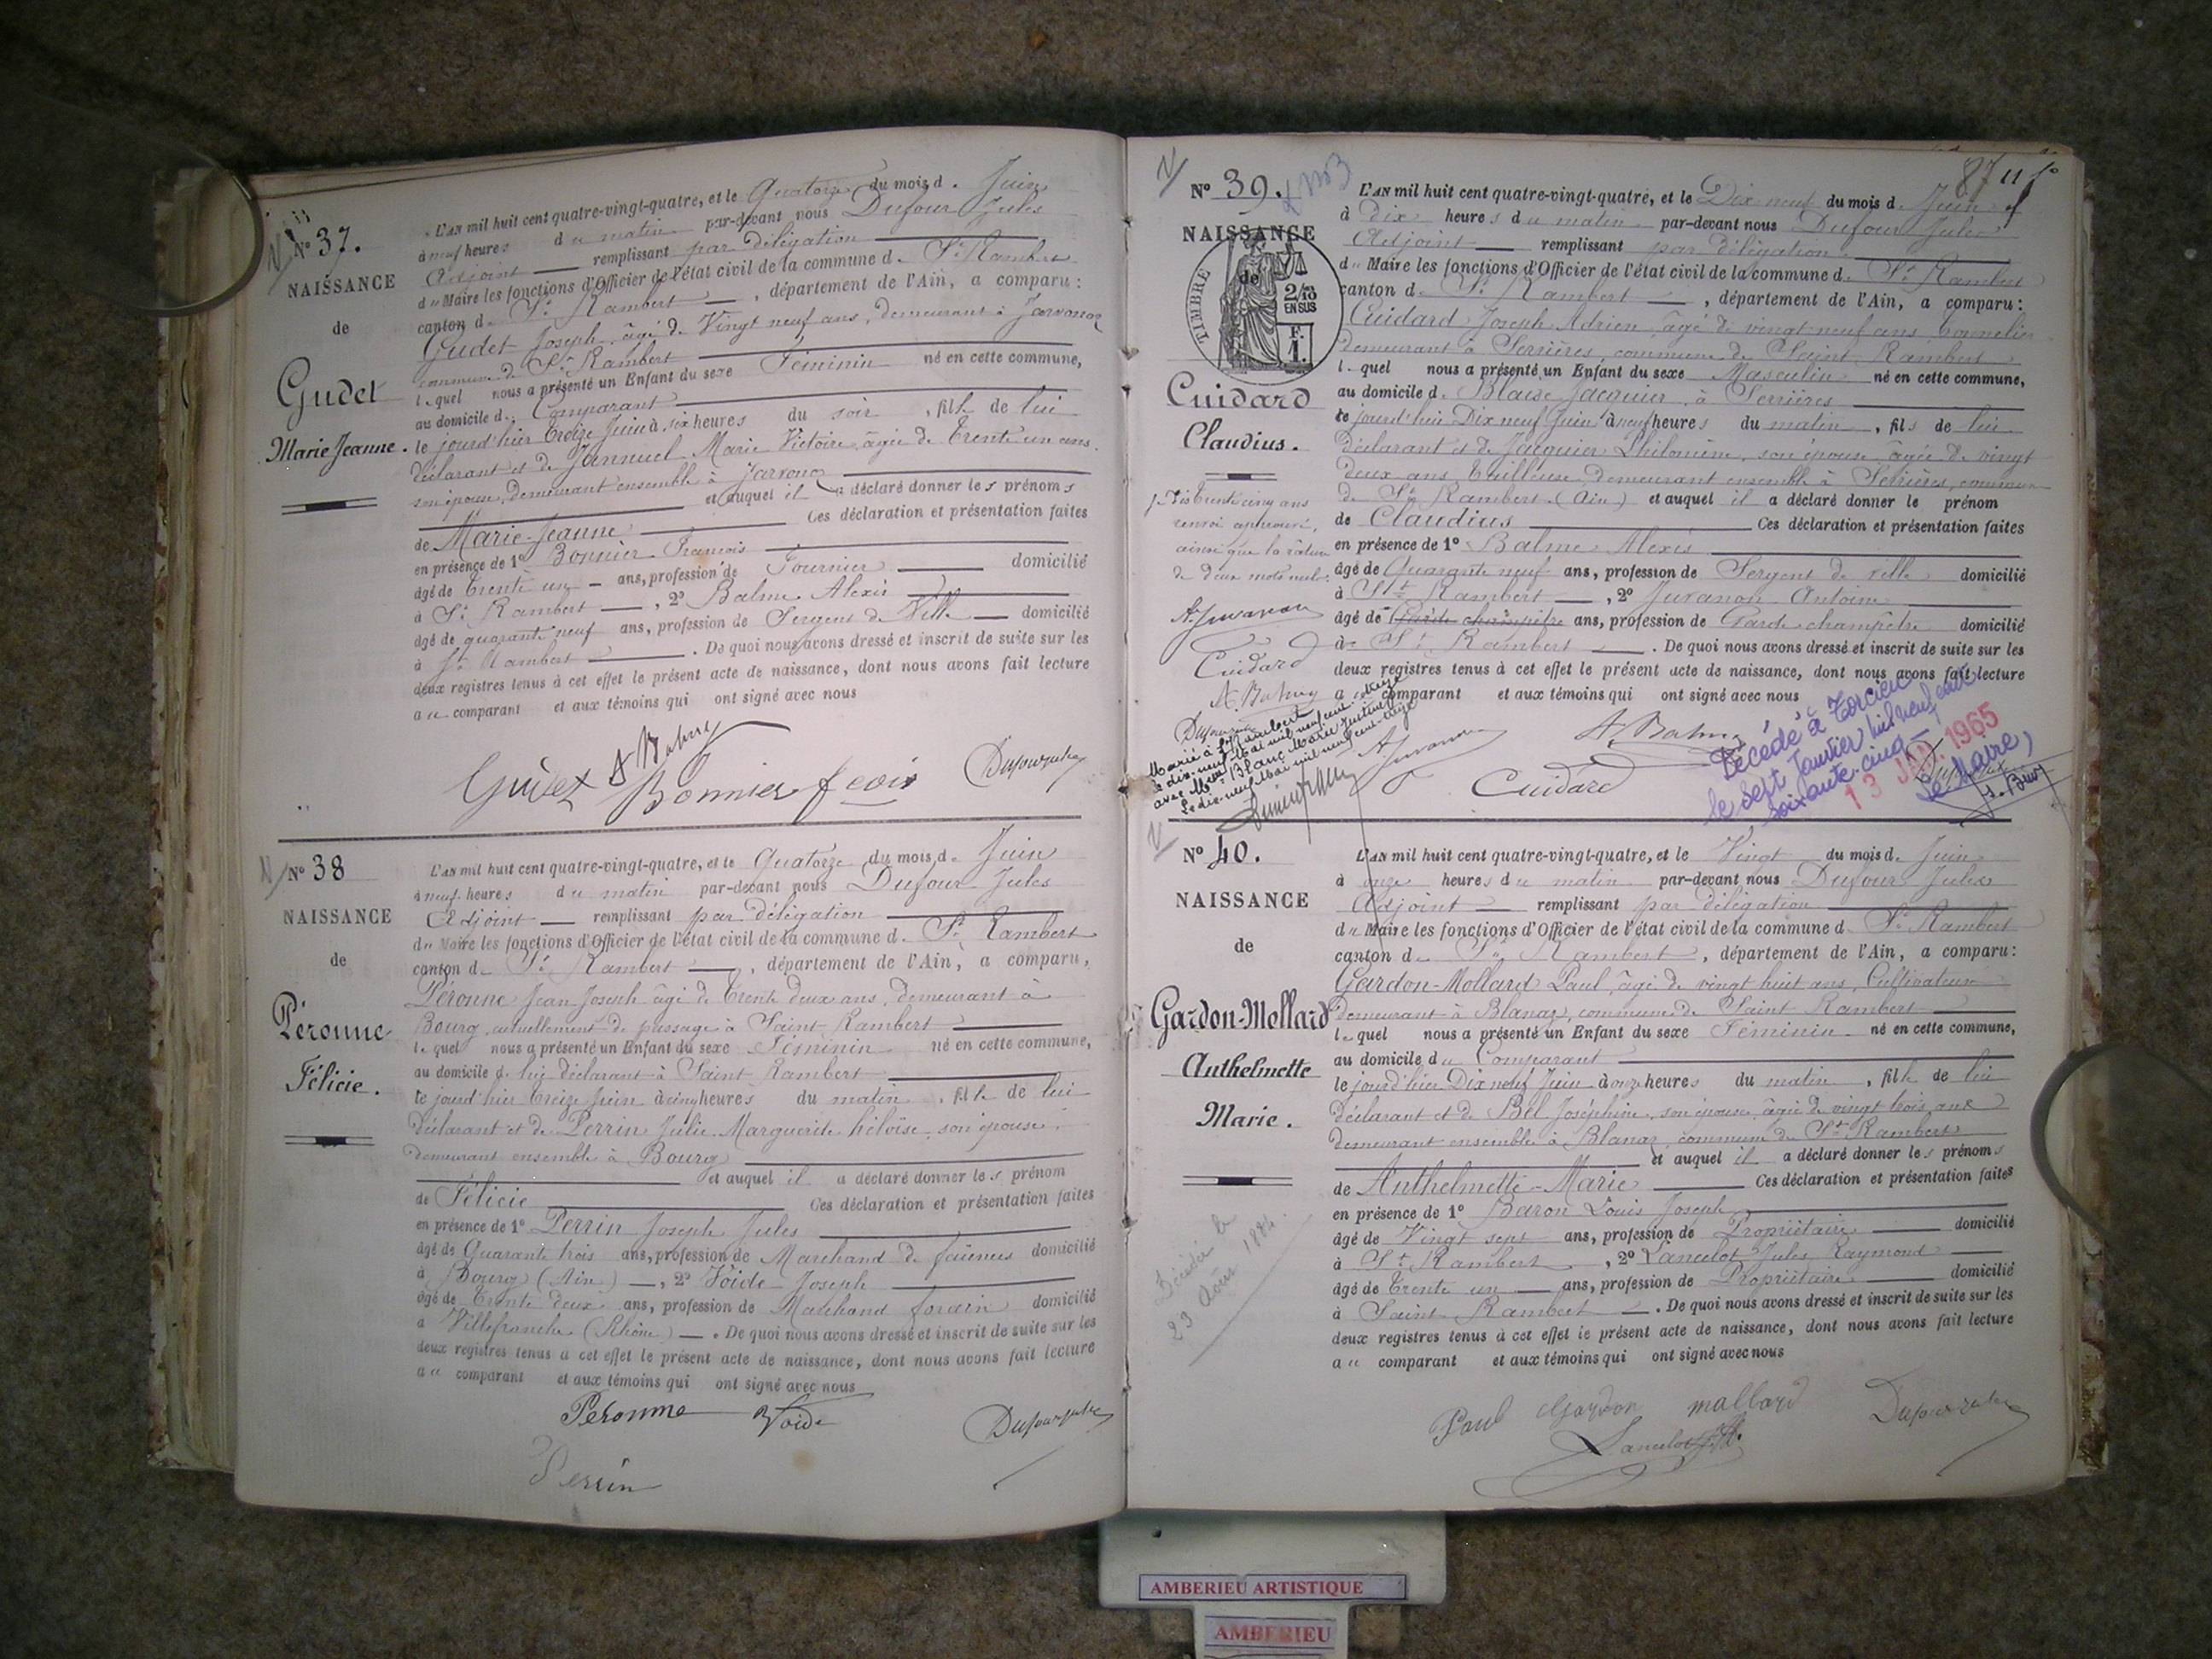 N° 37.
NAISSANCE
de
Gudet
Marie Jeanne.
L'AN mil huit cent quatre-vingt-quatre, et le Quatorze du mois d. Juin
à neuf heures du matin par-devant nous Dufour Jules
Adjoint remplissant par délégation
du Maire les fonctions d'Officier de l'état civil de la commune d. St Rambert
canton d. St Rambert, département de l'Ain, a comparu:
Gudet Joseph, âgé de Vingt neuf ans, demeurant à Javornoz
commune de St Rambert
lequel nous a présenté un Enfant du sexe Féminin né en cette commune,
au domicile d. Comparant
le jourd'hier treize Juin à six heures du soir, fille de lui
déclarant et de Jannuel Marie Victoire, âgée de trente un ans.
son épouse, demeurant ensemble à Javornoz
et auquel il a déclaré donner les prénoms
de Marie-Jeanne Ces déclaration et présentation faites
en présence de 1° Bonnier François
âgé de trente un ans, profession de Fournier domicilié
à St Rambert, 2° Balme Alexis
âgé de quarante neuf ans, profession de Sergent de Ville domicilié
à St Rambert. De quoi nous avons dressé et inscrit de suite sur les
deux registres tenus à cet effet le présent acte de naissance, dont nous avons fait lecture
au comparant et aux témoins qui ont signé avec nous
A Balme
Gudet Bonnier fcois Dufour Jules
N° 38
NAISSANCE
de
Péronne
Félicie.
L'AN mil huit cent quatre-vingt-quatre, et le Quatorze du mois d. Juin
à neuf heures du matin par-devant nous Dufour Jules
Adjoint remplissant par délégation
du Maire les fonctions d'Officier de l'état civil de la commune d. St Rambert
canton de St Rambert, département de l'Ain, a comparu,
Péronne Jean Joseph âgé de trente deux ans, demeurant à
Bourg, actuellement de passage à Saint Rambert
lequel nous a présenté un Enfant du sexe Féminin né en cette commune,
au domicile d. lui déclarant à Saint Rambert
le jourd'hier treize juin à cinq heures du matin, fille de lui
déclarant et de Perrin Julie Marguerite héloïse, son épouse,
demeurant ensemble à Bourg
et auquel il a déclaré donner les prénom
de Félicie Ces déclaration et présentation faites
en présence de 1° Perrin Joseph Jules
âgé de Quarante trois ans, profession de Marchand de faïences domicilié
à Bourg (Ain), 2° Voide Joseph
âgé de trente deux ans, profession de Marchand forain domicilié
à Villefranche (Rhône). De quoi nous avons dressé et inscrit de suite sur les
deux registres tenus à cet effet le présent acte de naissance, dont nous avons fait lecture
au comparant et aux témoins qui ont signé avec nous
Peronne Voide Dufour Jules
Perrin
87
N° 39.
NAISSANCE
de
TIMBRE
2/10 EN SUS
F. 1.
Cuidard
Claudius.
trente cinq ans
renvoi approuvé,
ainsi que la rature
de deux mots nuls.
A. Juvanon
Cuidard
A. Balme
Dufour
Marié à St Rambert
le dix-neuf Mai mil neuf cent onze
avec Melle Blanc Marie Justine
Le dix-neuf Mai mil neuf cent onze
L'AN mil huit cent quatre-vingt-quatre, et le Dix neuf du mois d. Juin
à dix heures du matin par-devant nous Dufour Jules
Adjoint remplissant par délégation
du Maire les fonctions d'Officier de l'état civil de la commune d. St Rambert
canton d. St Rambert, département de l'Ain, a comparu:
Cuidard Joseph Adrien, âgé de vingt neuf ans tonnelier
demeurant à Serrières, commune de Saint Rambert
lequel nous a présenté un Enfant du sexe Masculin né en cette commune,
au domicile d. Blaise Jacquier à Serrières
le jourd'hui Dix neuf Juin à neuf heures du matin, fils de lui
déclarant et de Jacquier Philomène, son épouse, âgée de vingt
deux ans tailleuse, demeurant ensemble à Serrières, commune
de St Rambert (Ain) et auquel il a déclaré donner le prénom
de Claudius Ces déclaration et présentation faites
en présence de 1° Balme Alexis
âgé de Quarante neuf ans, profession de Sergent de ville domicilié
à St Rambert, 2° Juvanon Antoine
âgé de Garde champêtre ans, profession de Garde champêtre domicilié
à St Rambert. De quoi nous avons dressé et inscrit de suite sur les
deux registres tenus à cet effet le présent acte de naissance, dont nous avons fait lecture
au comparant et aux témoins qui ont signé avec nous
A. Juvanon A. Balme
Cuidard
Décédé à Torcieu
le sept Janvier mil neuf cent
soixante-cinq
13 JAN 1965
Le Maire,
N° 40.
NAISSANCE
de
Gardon-Mollard
Anthelmette
Marie.
Décédée le
23 Août 1884.
L'AN mil huit cent quatre-vingt-quatre, et le Vingt du mois d. Juin
à onze heures du matin par-devant nous Dufour Jules
Adjoint remplissant par délégation
du Maire les fonctions d'Officier de l'état civil de la commune d. St Rambert
canton de St Rambert, département de l'Ain, a comparu:
Gardon-Mollard Paul, âgé de vingt huit ans, Cultivateur
demeurant à Blanaz, commune de Saint Rambert
lequel nous a présenté un Enfant du sexe Féminin né en cette commune,
au domicile du Comparant
le jourd'hier Dix neuf Juin à onze heures du matin, fille de lui
déclarant et de Bel Joséphine, son épouse âgée de vingt trois ans
demeurant ensemble à Blanaz, commune de St Rambert
et auquel il a déclaré donner les prénoms
de Anthelmette-Marie Ces déclaration et présentation faites
en présence de 1° Baron Louis Joseph
âgé de Vingt sept ans, profession de Propriétaire domicilié
à St Rambert, 2° Lancelot Jules Raymond
âgé de trente un ans, profession de Propriétaire domicilié
à Saint Rambert. De quoi nous avons dressé et inscrit de suite sur les
deux registres tenus à cet effet le présent acte de naissance, dont nous avons fait lecture
au comparant et aux témoins qui ont signé avec nous
Paul Gardon mallard Dufour Jules
Lancelot J.R.
AMBERIEU ARTISTIQUE
AMBERIEU